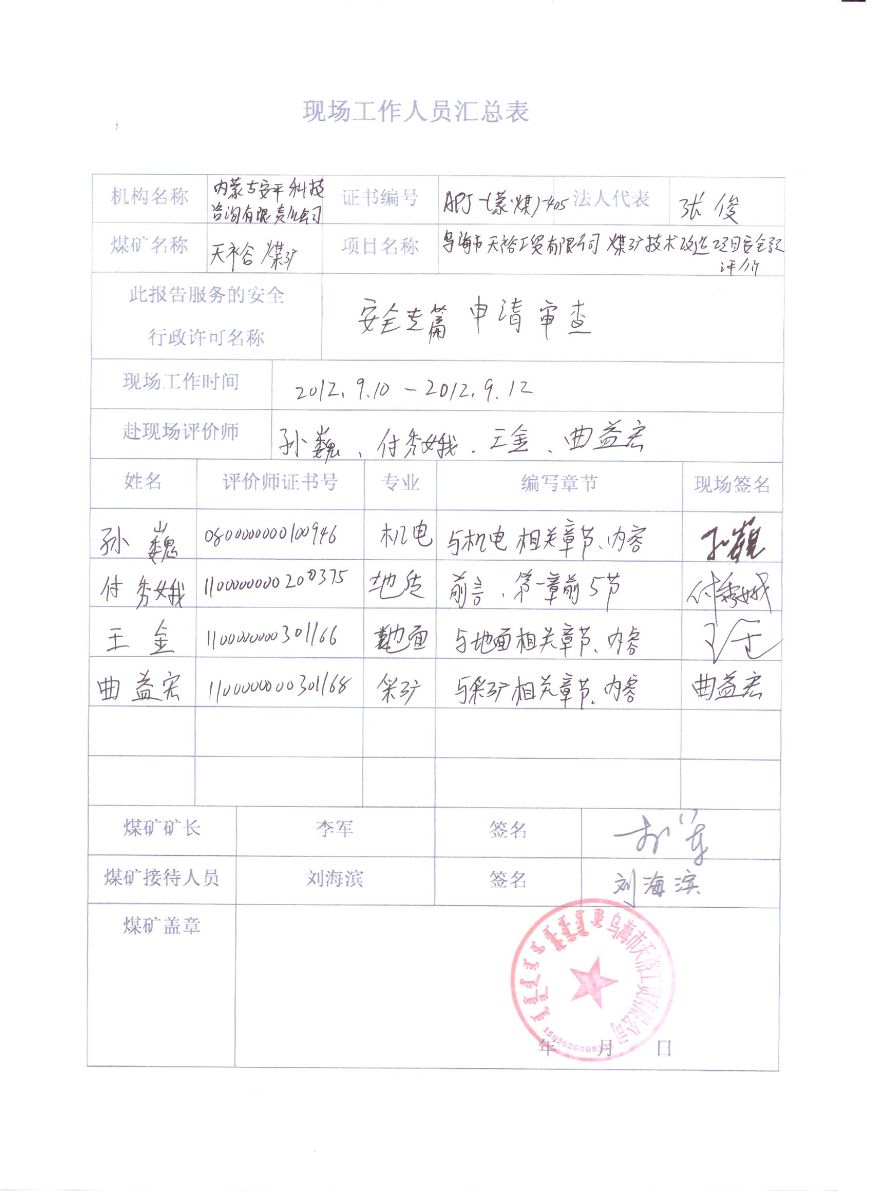 现场工作人员汇总表
机构名称 内蒙古安平科技 证书编号 APJ-(蒙煤)-405 法人代表 张俊
咨询有限责任公司
煤矿名称 天裕 煤矿 项目名称 乌海市天裕工贸有限公司煤矿技术改造项目安全预
评价
此报告服务的安全
行政许可名称 安全专篇申请审查
现场工作时间 2012.9.10-2012.9.12
赴现场评价师 孙巍、付秀娥、王金、曲益宏
姓名 评价师证书号 专业 编写章节 现场签名
孙巍 0800000000100946 机电 与机电相关章节、内容 孙巍
付秀娥 1100000000200375 地质 前言、第一章前5节 付秀娥
王金 1100000000301166 地面 与地面相关章节、内容 王金
曲益宏 1100000000301168 采矿 与采矿相关章节、内容 曲益宏
煤矿矿长 李军 签名 李军
煤矿接待人员 刘海滨 签名 刘海滨
煤矿盖章
乌海市天裕工贸有限公司
年 月 日